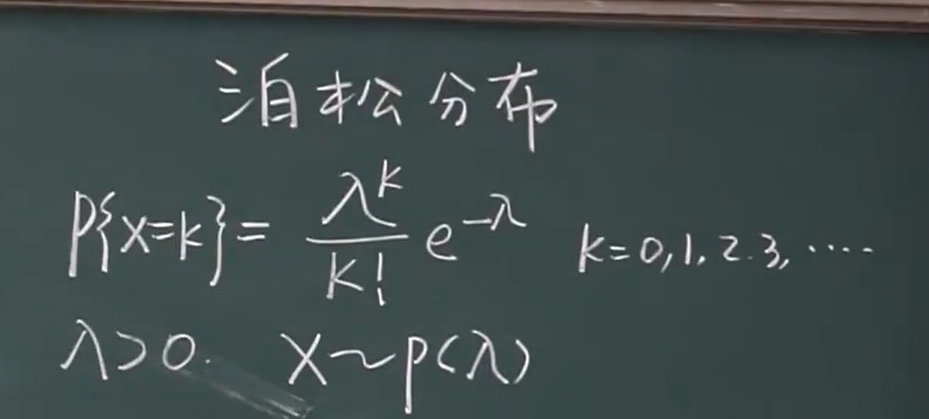 泊松分布
P{X=k}= \frac{λ^k}{k!} e^{-λ} k=0,1,2.3,····
λ>0. X~P(λ)